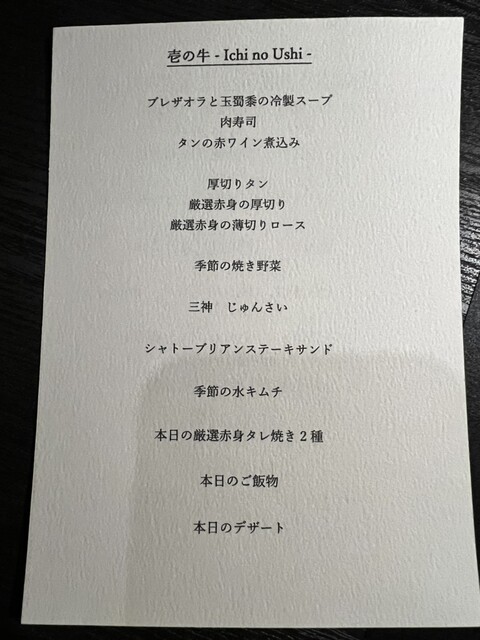 壱の牛 - Ichi no Ushi -
ブレザオラと玉蜀黍の冷製スープ
肉寿司
タンの赤ワイン煮込み
厚切りタン
厳選赤身の厚切り
厳選赤身の薄切りロース
季節の焼き野菜
三神　じゅんさい
シャトーブリアンステーキサンド
季節の水キムチ
本日の厳選赤身タレ焼き２種
本日のご飯物
本日のデザート